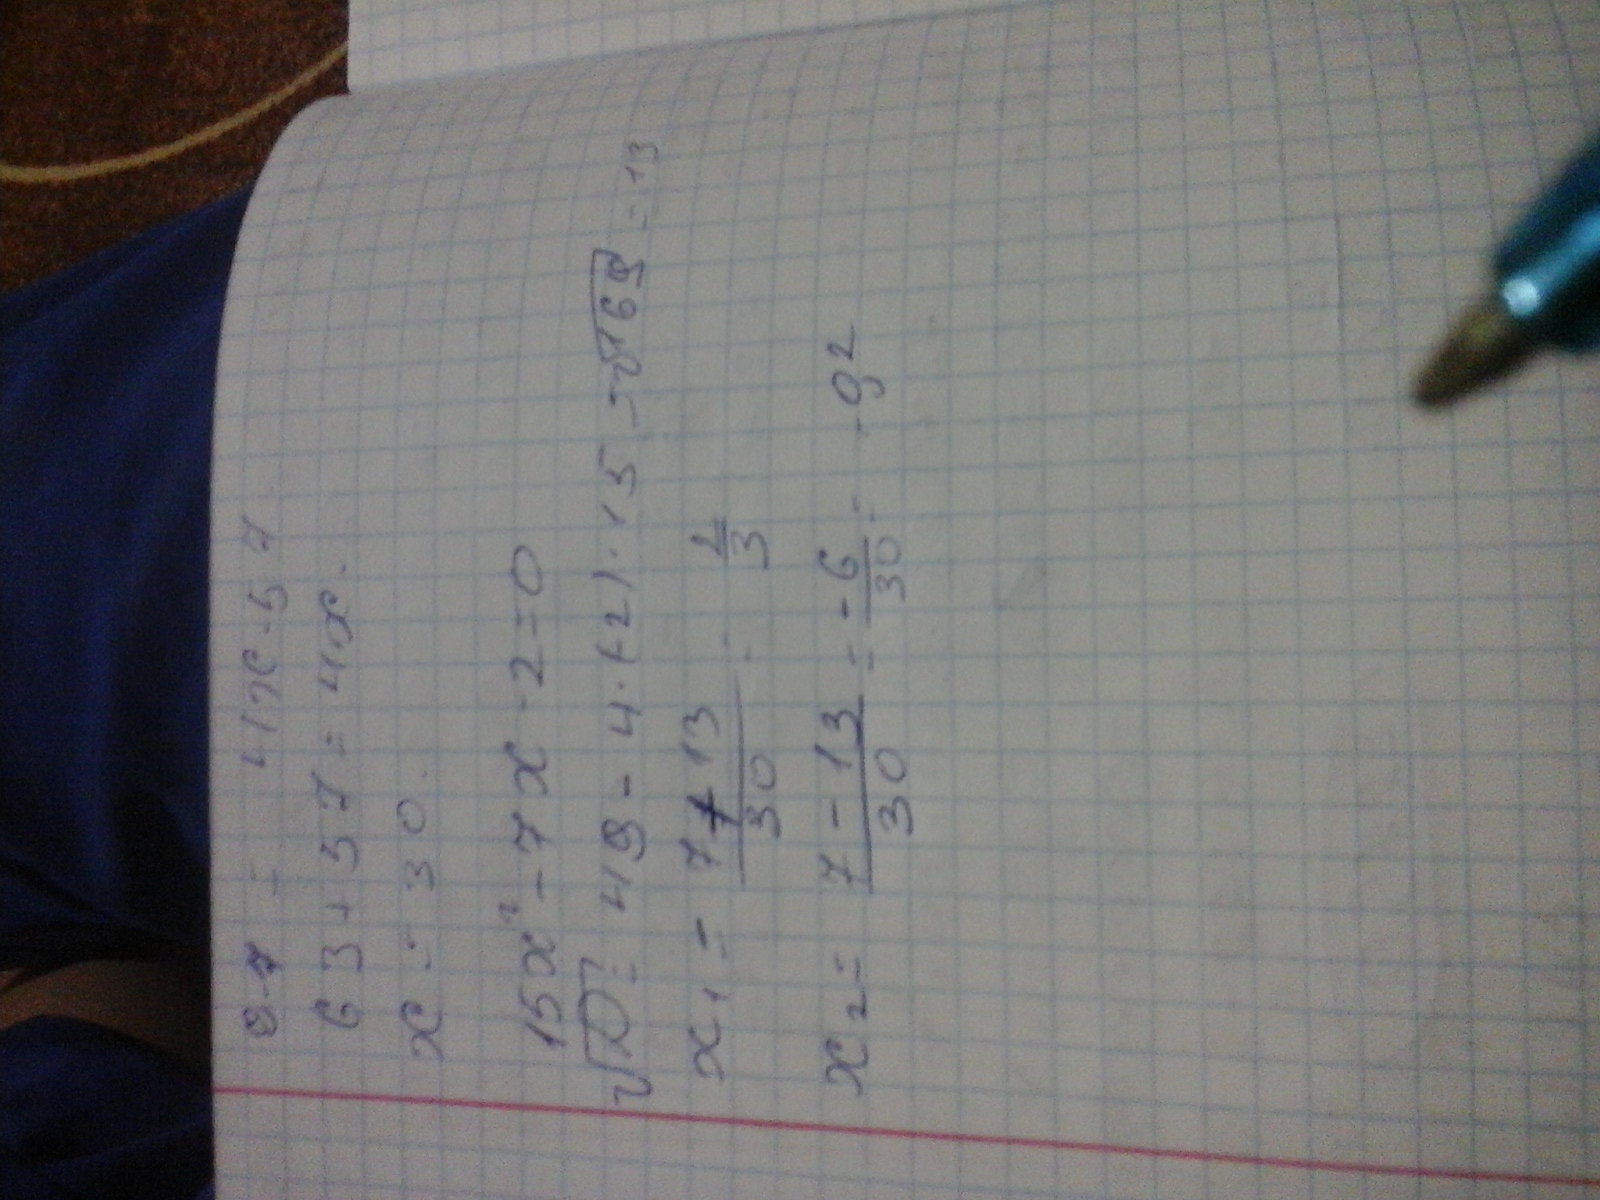 9·7 = 4x-57
63+57=4x.
x = 30.
15x²-7x-2=0
√D = 49-4·(-2)·15 = √169 = 13
x₁ = 7+13/30 = 2/3
x₂ = 7-13/30 = -6/30 = -02